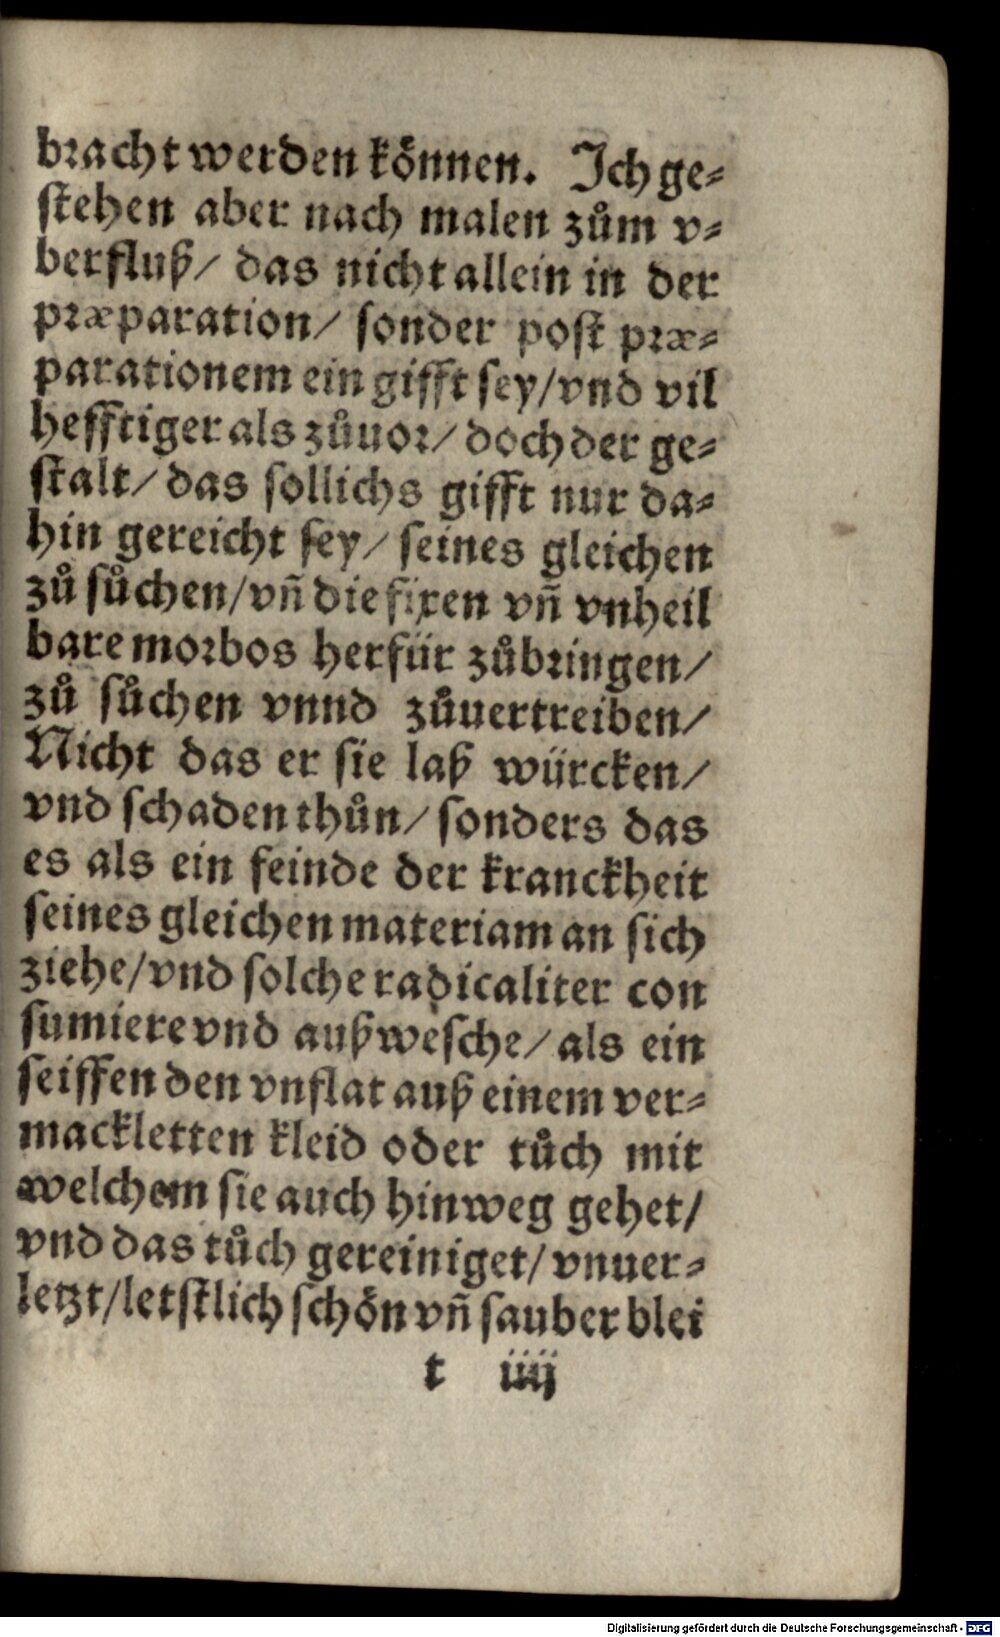 bracht werden können. Ich ge⸗
stehen aber nach malen zům v⸗
berfluß/ das nicht allein in der
præparation/ sonder post præ⸗
parationem ein gifft sey/vnd vil
hefftiger als zůuor/ doch der ge⸗
stalt/ das sollichs gifft nur da⸗
hin gereicht sey/ seines gleichen
zů sůchen/vñ die fixen vñ vnheil
bare morbos herfür zůbringen/
zů sůchen vnnd zůuertreiben/
Nicht das er sie laß würcken/
vnd schaden thůn/ sonders das
es als ein feinde der kranckheit
seines gleichen materiam an sich
ziehe/vnd solche radicaliter con
sumiere vnd außwesche/ als ein
seiffen den vnflat auß einem ver⸗
mackletten kleid oder tůch mit
welchem sie auch hinweg gehet/
vnd das tůch gereiniget/ vnuer⸗
letzt/letstlich schön vñ sauber blei
t iiij
Digitalisierung gefördert durch die Deutsche Forschungsgemeinschaft - DFG